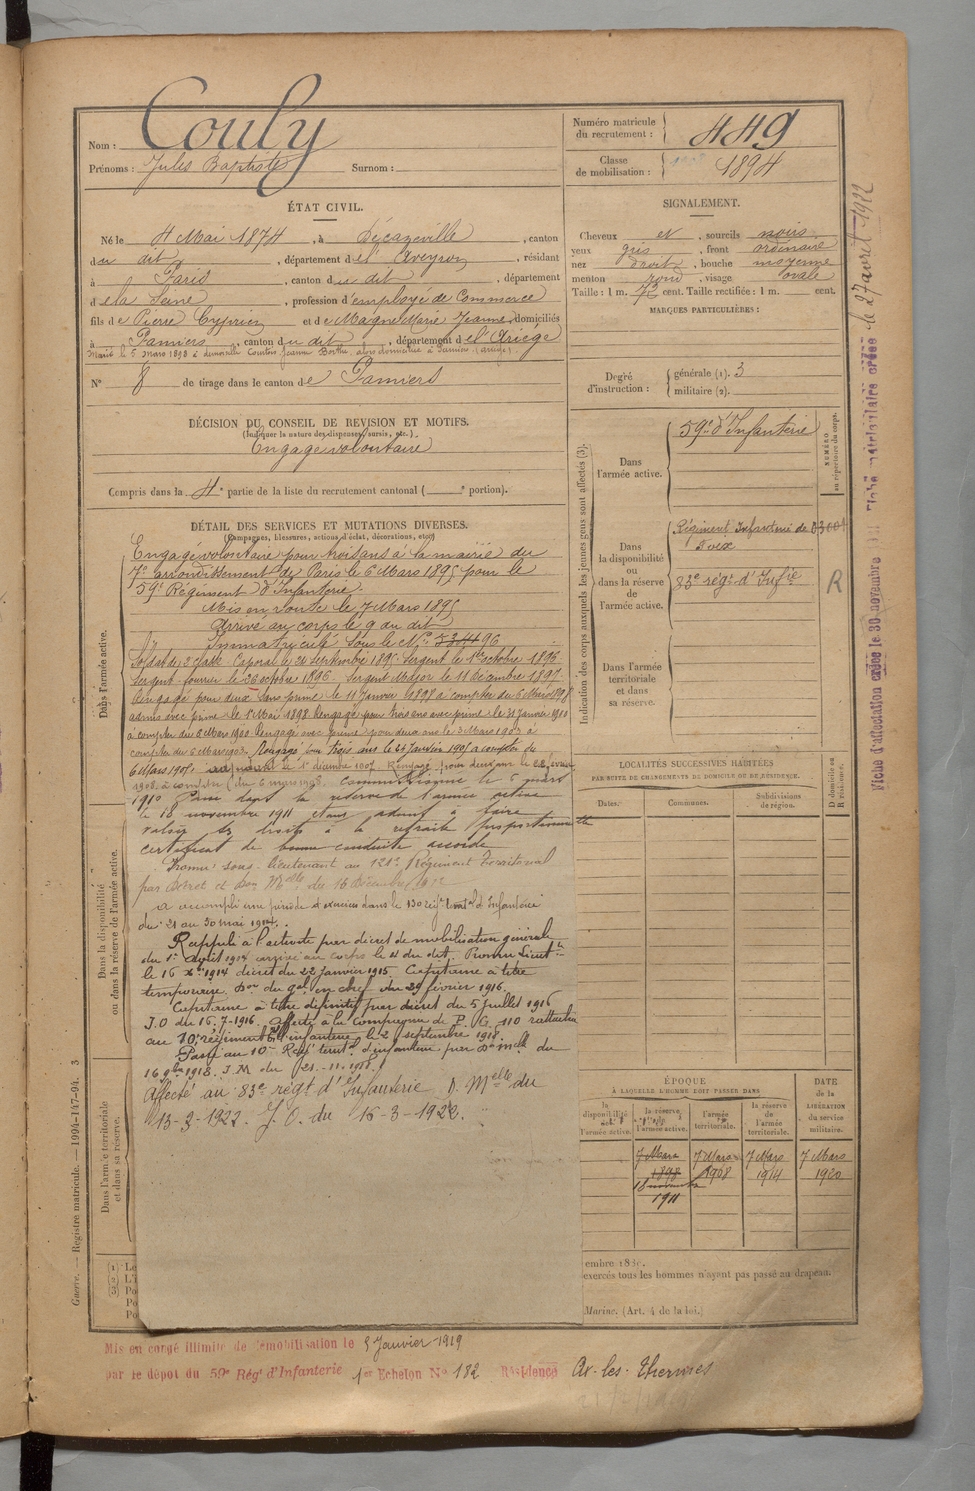 Nom : Couly
Prénoms : Jules Baptiste Surnom :
Numéro matricule du recrutement : 449
Classe de mobilisation : 1894
ÉTAT CIVIL.
Né le 4 Mai 1874, à Décazeville, canton
du dit, département de l'Aveyron, résidant
à Paris, canton du dit, département
de la Seine, profession d'employé de Commerce
fils de Pierre Cyprien et de Magne Marie Jeanne, domiciliés
à Pamiers, canton du dit, département de l'Ariège
Marié le 5 mars 1898 à demoiselle Jeanne Berthe, alors domiciliée à Pamiers (Ariège).
N° 8 de tirage dans le canton de Pamiers
SIGNALEMENT.
Cheveux et, sourcils noirs
yeux gris, front ordinaire
nez droit, bouche moyenne
menton rond, visage ovale
Taille : 1 m. 72 cent. Taille rectifiée : 1 m. cent.
MARQUES PARTICULIÈRES :
Degré d'instruction : générale (1). 3
militaire (2).
DÉCISION DU CONSEIL DE REVISION ET MOTIFS.
(Indiquer la nature des dispenses, sursis, etc.)
Engagé volontaire
Compris dans la 4e partie de la liste du recrutement cantonal ( e portion).
DÉTAIL DES SERVICES ET MUTATIONS DIVERSES.
(Campagnes, blessures, actions d'éclat, décorations, etc.)
Dans l'armée active.
Engagé volontaire pour trois ans à la mairie du
7e arrondissement de Paris le 6 Mars 1895 pour le
59e Régiment d'Infanterie.
Mis en route le 7 Mars 1895
Arrivé au corps le 9 du dit
Immatriculé sous le N°
Soldat de 2e classe. Caporal le 24 septembre 1895. Sergent le 1er octobre 1896.
Sergent-fourrier le 26 octobre 1896. Sergent Major le 11 décembre 1897.
Rengagé pour deux ans sans prime le 11 Janvier 1898 à compter du 6 Mars 1898
admis avec prime le 1er Mai 1898. Rengagé pour trois ans avec prime le 31 Janvier 1900
à compter du 6 Mars 1900. Rengagé avec prime pour deux ans le 3 Mars 1903 à
compter du 6 Mars 1903. Rengagé pour trois ans le 24 Janvier 1905 à compter du
6 Mars 1905. adjudant le 1er décembre 1905 Rengagé pour deux ans le février
1908 à compter du 6 mars 1908. Commissionné le 6 mars
1910 Passé dans la réserve de l'armée active
le 18 novembre 1911 étant admis à faire
valoir ses droits à la retraite proportionnelle
certificat de bonne conduite accordé
Promu sous-lieutenant au 121e Régiment Territorial
par décret et Don Mlle du 16 Décembre 1912
A accompli une période d'exercices dans le 130 régt territal d'Infanterie
du 21 au 30 mai 1914.
Rappelé à l'activité par décret de mobilisation générale
du 1er Août 1914 arrivé au corps le 4 du dit. Promu Lieut.
le 16 Xbre 1914 décret du 22 janvier 1915 Capitaine à titre
temporaire. Don du gal en chef du 29 février 1916.
Capitaine à titre définitif par décret du 5 juillet 1916
J.O du 16-7-1916. Affecté à la compagnie de P.G. 110 rattachée
au 10e régiment d'infanterie le 2 septembre 1918
Passé au 10e Régt territal d'infanterie par Don mlle du
16 9bre 1918. J.M. du 21-11-1918.
Affecté au 83e régt d'Infanterie D. Melle du
13-3-1922. J.O. du 16-3-1922.
Dans la disponibilité ou dans la réserve de l'armée active.
Dans l'armée territoriale et dans sa réserve.
Indication des corps auxquels les jeunes gens sont affectés (3).
NUMÉRO au répertoire du corps.
Dans l'armée active.
59e d'Infanterie
Dans la disponibilité ou dans la réserve de l'armée active.
Régiment Infanterie de
Foix
83e régt d'Infie
R
Dans l'armée territoriale et dans sa réserve.
LOCALITÉS SUCCESSIVES HABITÉES
PAR SUITE DE CHANGEMENTS DE DOMICILE OU DE RÉSIDENCE.
Dates. Communes. Subdivisions de région.
D domicile ou R résidence.
ÉPOQUE
À LAQUELLE L'HOMME DOIT PASSER DANS
DATE de la LIBÉRATION du service militaire.
la disponibilité de l'armée active. la réserve de l'armée active. l'armée territoriale. la réserve de l'armée territoriale.
7 Mars 7 Mars 7 Mars 7 Mars
1898 1908 1914 1920
18 novembre
1911
exercés tous les hommes n'ayant pas passé au drapeau.
Marine. (Art. 4 de la loi.)
Guerre. — Registre matricule. — 1994-147-94. 3
Mis en congé illimité de démobilisation le 5 Janvier 1919
par le dépôt du 59e Rég' d'Infanterie 1er Echelon N° 182 Résidence Ax-les-Thermes
Fiche d'affectation créée le 30 novembre
Fiche matriculaire créée le 27 avril 1922